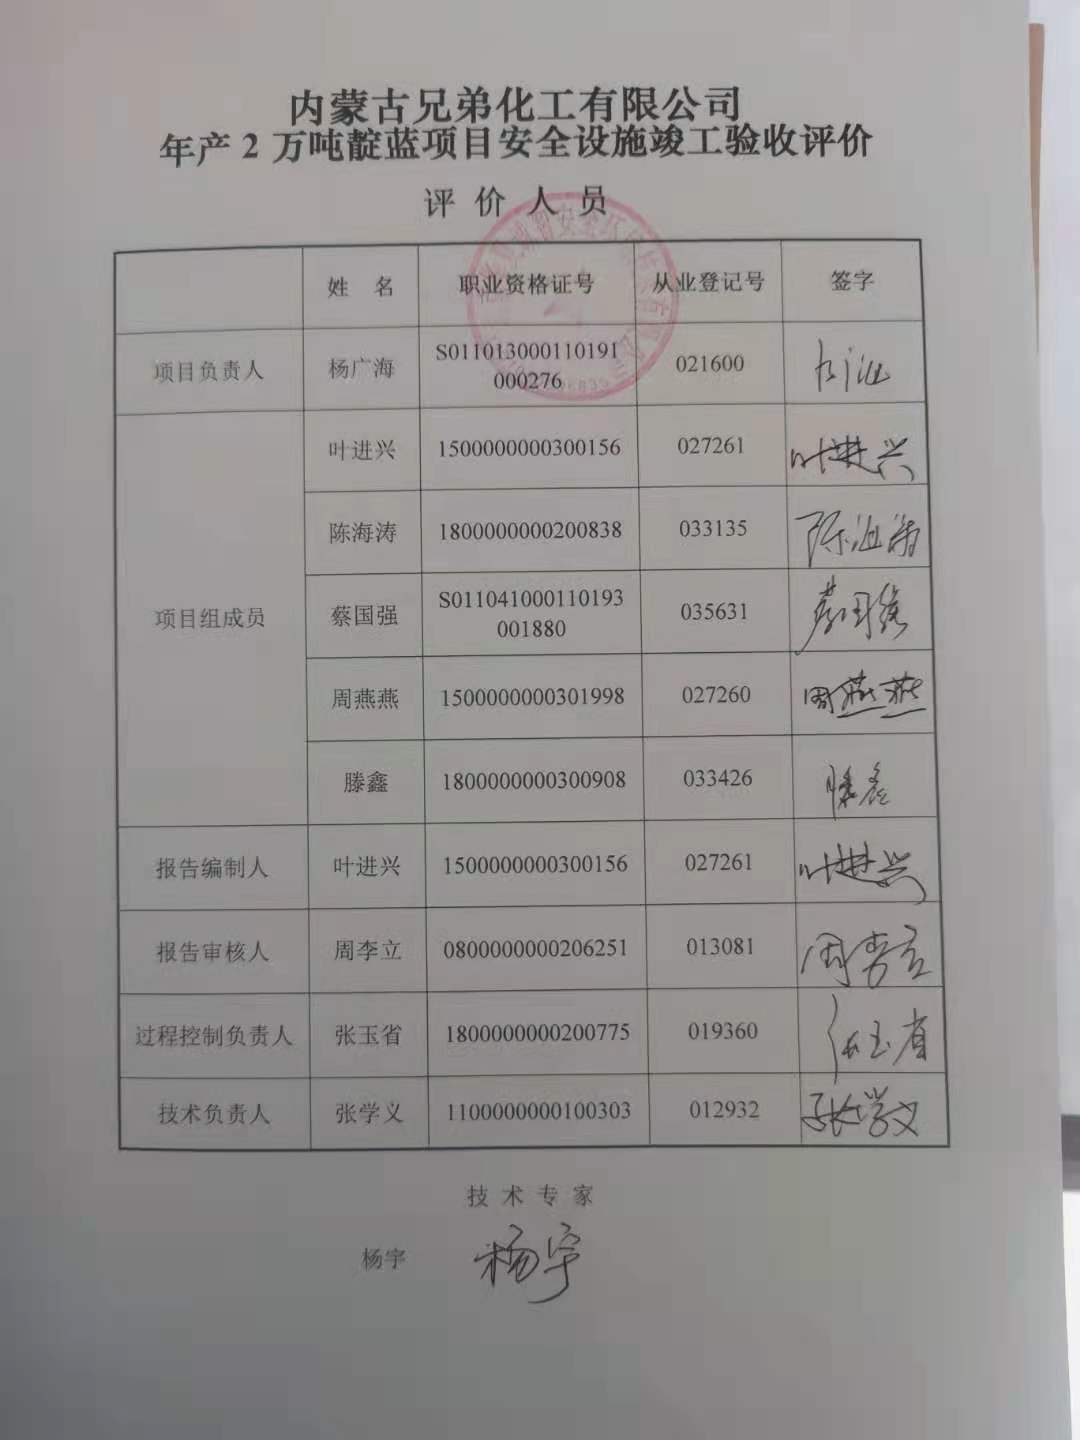 内蒙古兄弟化工有限公司
年产2万吨靛蓝项目安全设施竣工验收评价
评价人员
姓 名 职业资格证号 从业登记号 签字
项目负责人 杨广海 S011013000110191000276 021600
项目组成员
叶进兴 1500000000300156 027261 叶进兴
陈海涛 1800000000200838 033135 陈海涛
蔡国强 S011041000110193001880 035631 蔡国强
周燕燕 1500000000301998 027260 周燕燕
滕鑫 1800000000300908 033426 滕鑫
报告编制人 叶进兴 1500000000300156 027261 叶进兴
报告审核人 周李立 0800000000206251 013081 周李立
过程控制负责人 张玉省 1800000000200775 019360 张玉省
技术负责人 张学义 1100000000100303 012932 张学义
技术专家
杨宇 杨宇